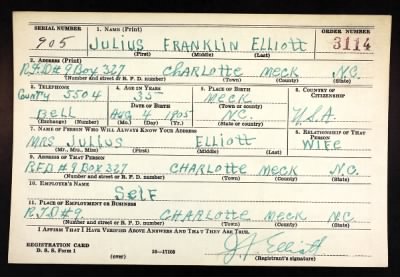 SERIAL NUMBER 1. NAME (Print) ORDER NUMBER
905 JULIUS FRANKLIN ELLIOTT 3114
(First) (Middle) (Last)
2. ADDRESS (Print)
R.F.D # 9 BOX 327 CHARLOTTE MECK N.C.
(Number and street or R. F. D. number) (Town) (County) (State)
3. TELEPHONE 4. AGE IN YEARS 5. PLACE OF BIRTH 6. COUNTRY OF CITIZENSHIP
COUNTY 5504 35 MECK
DATE OF BIRTH (Town or county)
BELL AUG 4 1905 N.C. U.S.A.
(Exchange) (Number) (Mo.) (Day) (Yr.) (State or country)
7. NAME OF PERSON WHO WILL ALWAYS KNOW YOUR ADDRESS 8. RELATIONSHIP OF THAT PERSON
MRS JULIUS ELLIOTT WIFE
(Mr., Mrs., Miss) (First) (Middle) (Last)
9. ADDRESS OF THAT PERSON
R.F.D # 9 BOX 327 CHARLOTTE MECK N.C.
(Number and street or R. F. D. number) (Town) (County) (State)
10. EMPLOYER'S NAME
SELF
11. PLACE OF EMPLOYMENT OR BUSINESS
R.F.D # 9 CHARLOTTE MECK N.C.
(Number and street or R. F. D. number) (Town) (County) (State)
I AFFIRM THAT I HAVE VERIFIED ABOVE ANSWERS AND THAT THEY ARE TRUE.
REGISTRATION CARD
D. S. S. Form 1 16—17105 J F Elliott
(over) (Registrant's signature)